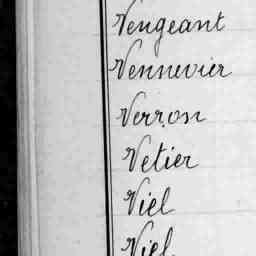 Vengeant
Vennevier
Verron
Vetier
Viel
Viel